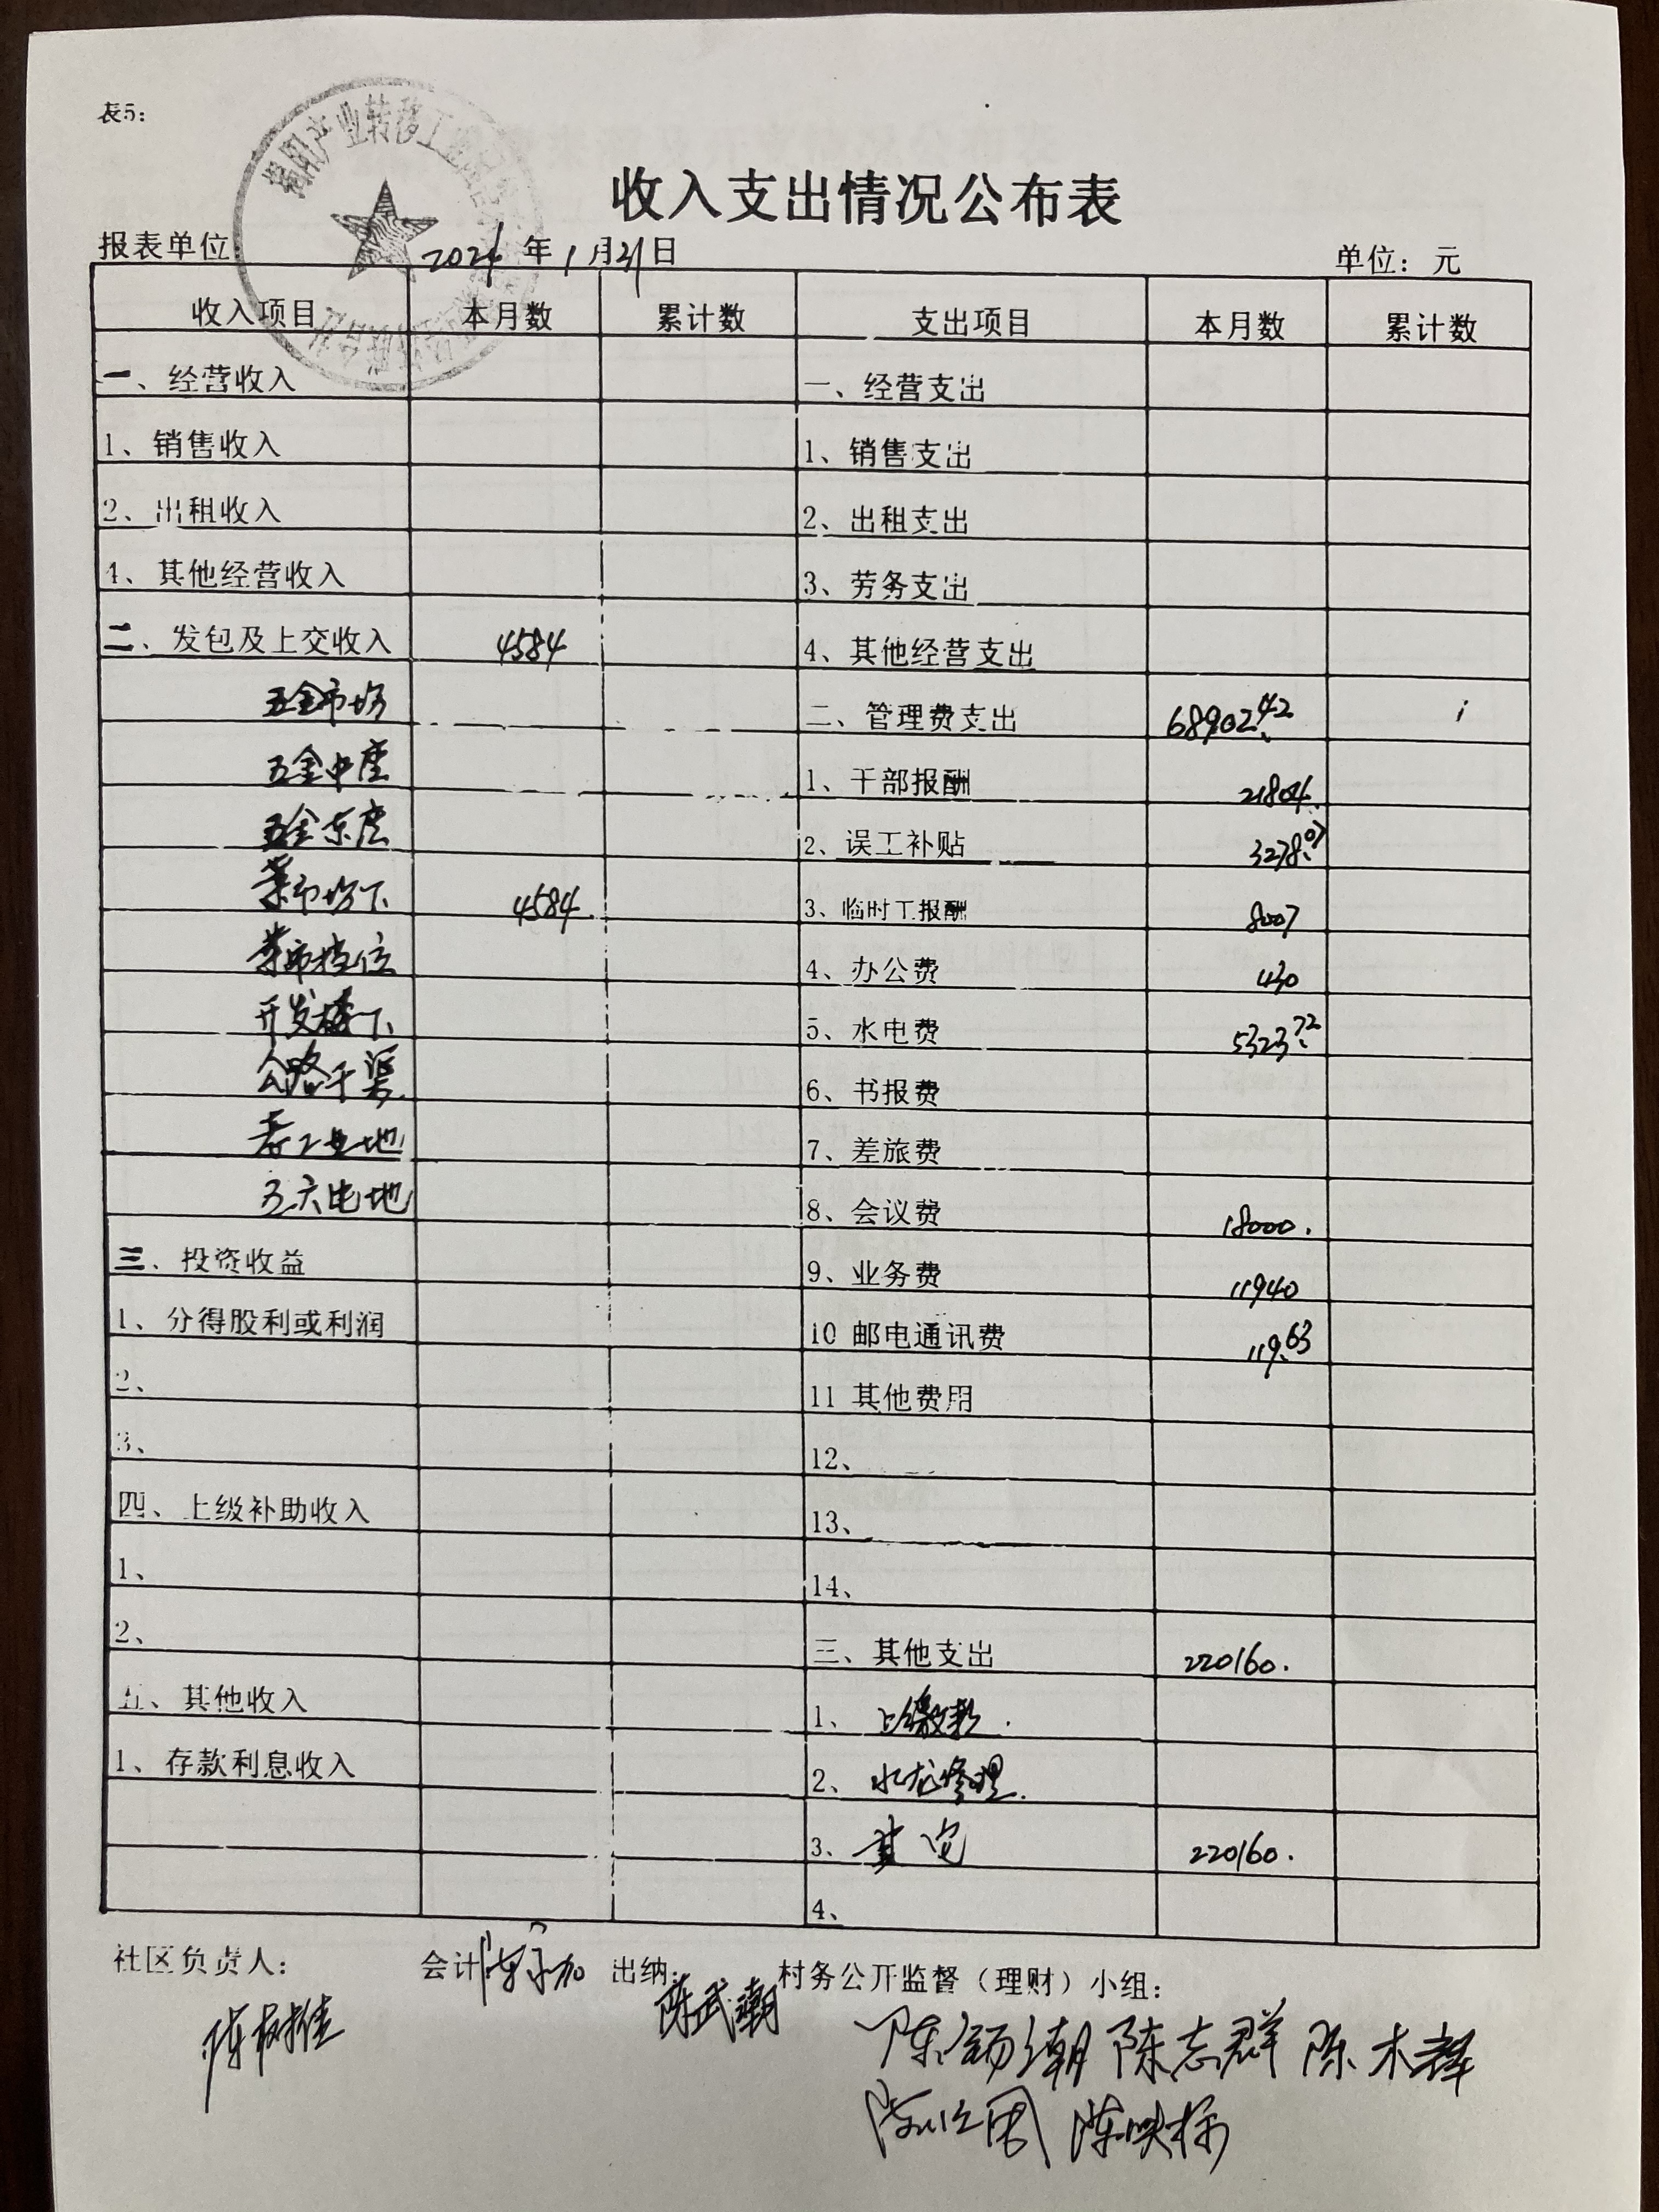 表5:
收入支出情况公布表
报表单位: 年1月31日 单位: 元
收入项目 本月数 累计数 支出项目 本月数 累计数
一、经营收入 一、经营支出
1、销售收入 1、销售支出
2、出租收入 2、出租支出
4、其他经营收入 3、劳务支出
二、发包及上交收入 4584 4、其他经营支出
五金市场 二、管理费支出 68902.42
五金中座 1、干部报酬 21804
五金东座 2、误工补贴 3278.07
菜市场下 4584. 3、临时工报酬 8007
菜市档位 4、办公费 430
开发楼下 5、水电费 5323.72
公路干渠 6、书报费
7、差旅费
8、会议费 18000.
三、投资收益 9、业务费 11940
1、分得股利或利润 10 邮电通讯费 119.63
2、 11 其他费用
3、 12、
四、上级补助收入 13、
1、 14、
2、 三、其他支出 220160.
五、其他收入 1、上缴款.
1、存款利息收入 2、水龙修理.
3、其它 220160.
4、
社区负责人: 会计 出纳: 村务公开监督(理财)小组:
陈武潮
陈志群 陈木